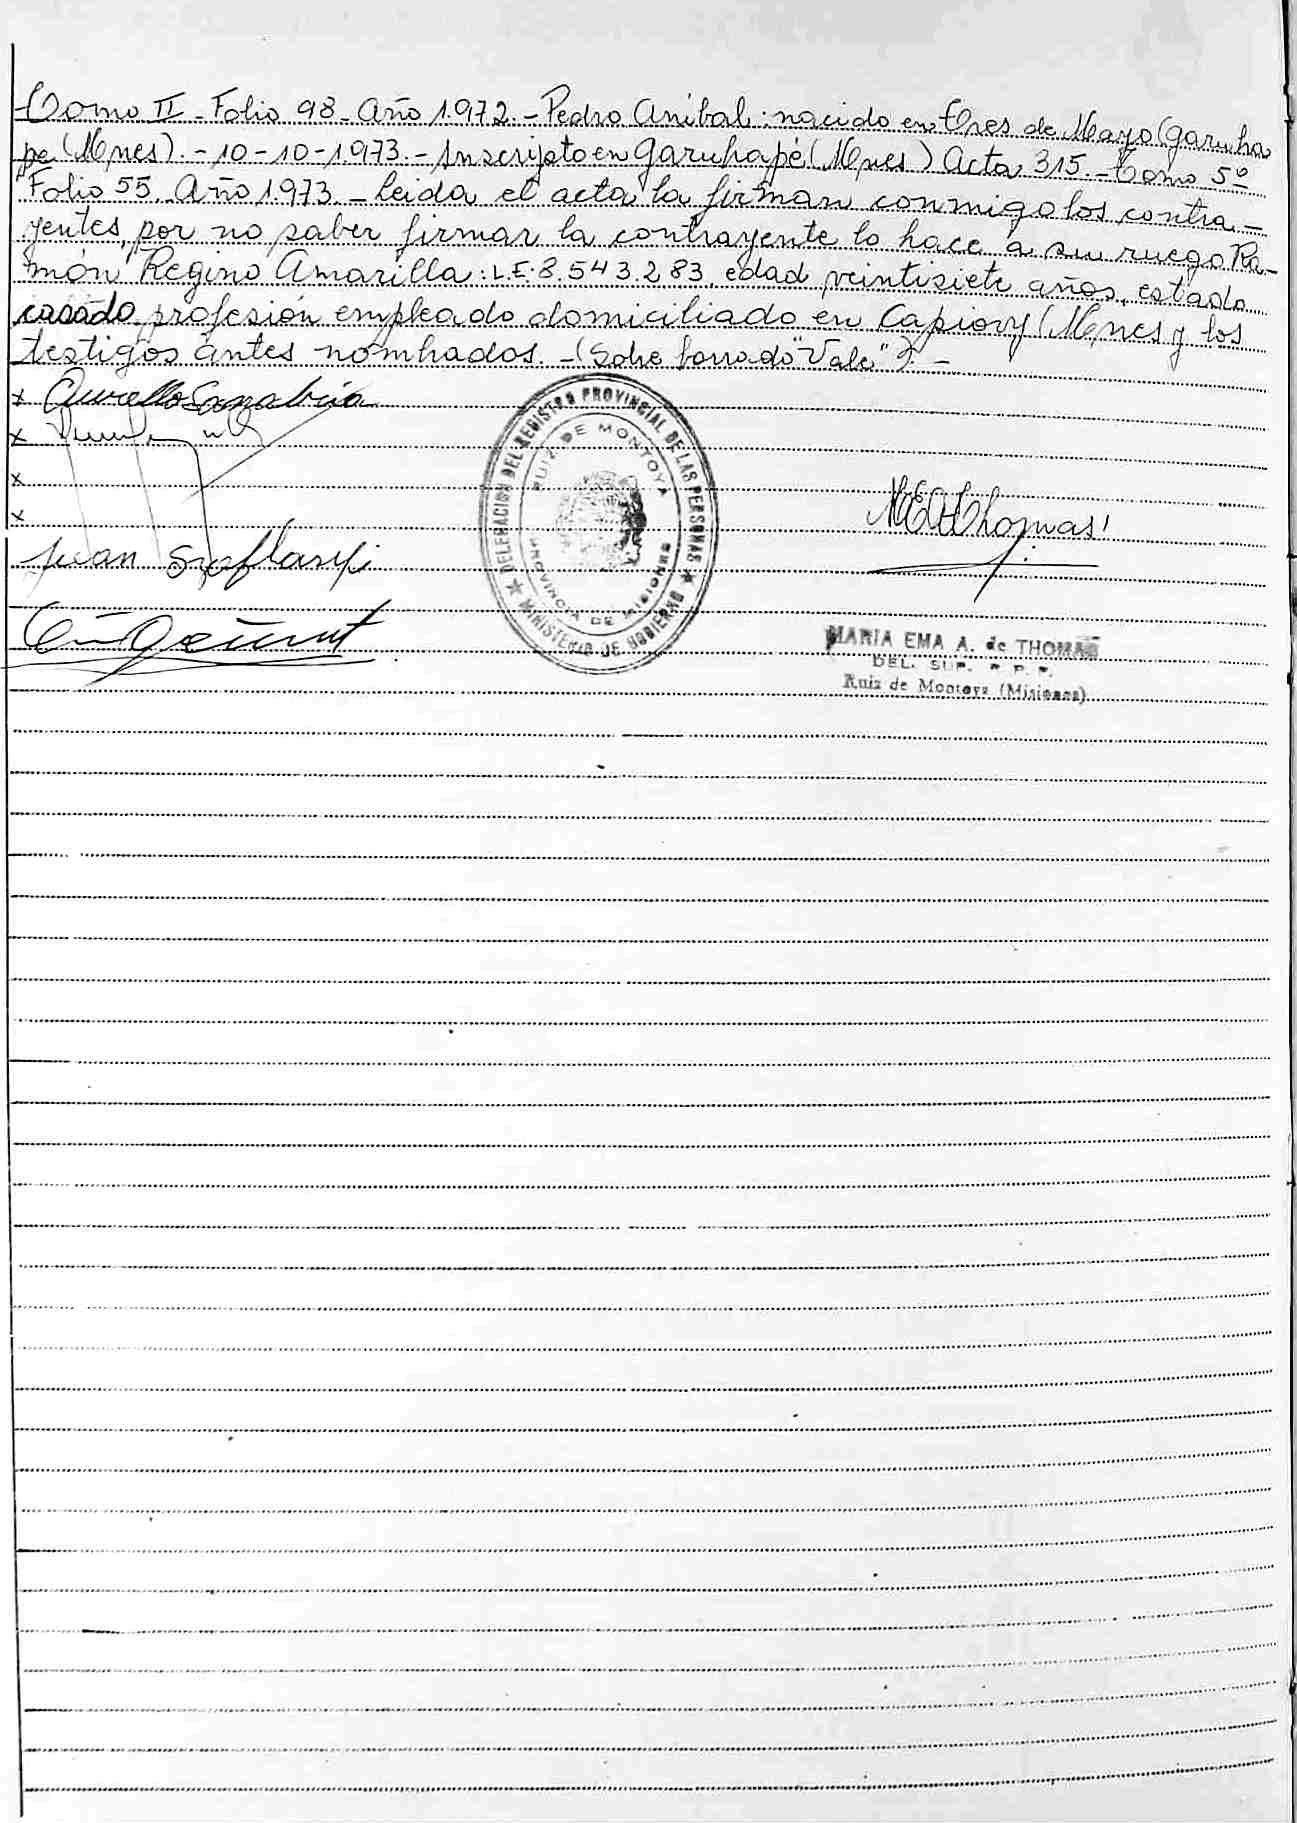 Tomo II - Folio 98 - Año 1.972. - Pedro Anibal: nacido en Tres de Mayo (Garuha
pe (Mnes). - 10-10-1.973. - Inscripto en Garuhapé (Mnes) Acta 315. - Tomo 5º
Folio 55. Año 1.973. - Leida el acta la firman conmigo los contra-
yentes, por no saber firmar la contrayente lo hace a su ruego Ra-
món Regino Amarilla: L.E. 8.543.283, edad veintisiete años, estado
casado, profesión empleado domiciliado en Capiovy (Mnes y los
testigos antes nombrados. - (Sobre borrado "Vale"). -
x Aurelio Sanabria
x
x
x
Juan
DELEGACION DEL REGISTRO PROVINCIAL DE LAS PERSONAS
★ MINISTERIO DE GOBIERNO ★
RUIZ DE MONTOYA
PROVINCIA DE MISIONES
MEAThomas
MARIA EMA A. de THOMAS
DEL. SUP. R. P. P.
Ruiz de Montoya (Misiones)